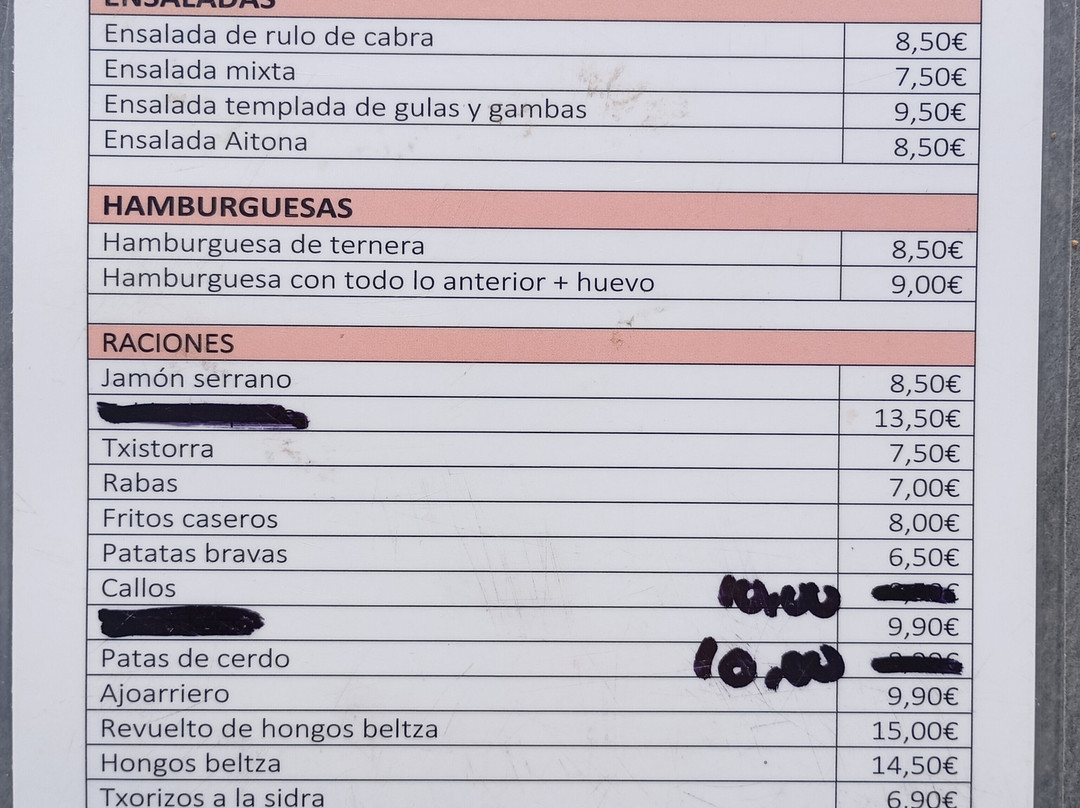 ENSALADAS
Ensalada de rulo de cabra 8,50€
Ensalada mixta 7,50€
Ensalada templada de gulas y gambas 9,50€
Ensalada Aitona 8,50€
HAMBURGUESAS
Hamburguesa de ternera 8,50€
Hamburguesa con todo lo anterior + huevo 9,00€
RACIONES
Jamón serrano 8,50€
13,50€
Txistorra 7,50€
Rabas 7,00€
Fritos caseros 8,00€
Patatas bravas 6,50€
Callos 10,00
9,90€
Patas de cerdo 10,00
Ajoarriero 9,90€
Revuelto de hongos beltza 15,00€
Hongos beltza 14,50€
Txorizos a la sidra 6,90€